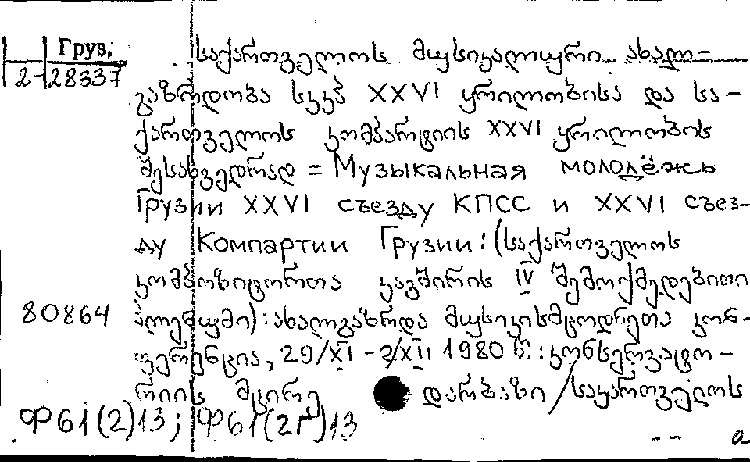 Груз.
2-28337
საქართველოს მუსიკალური ახალ-
გაზრდობა სკკპ XXVI ყრილობისა და სა-
ქართველოს კომპარტიის XXVI ყრილობის
შესახვედრად = Музыкальная молодёжь
Грузии XXVI съезду КПСС и XXVI съез-
ду Компартии Грузии: (საქართველოს
კომპოზიტორთა კავშირის IV შემოქმედებითი
80864 პლენუმი): ახალგაზრდა მუსიკისმცოდნეთა კონ-
ფერენცია, 29/XI - 2/XII 1980 წ.: კონსერვატო-
რიის მცირე დარბაზი / საქართველოს
Ф61(2)13; Ф61(2Г)13
a